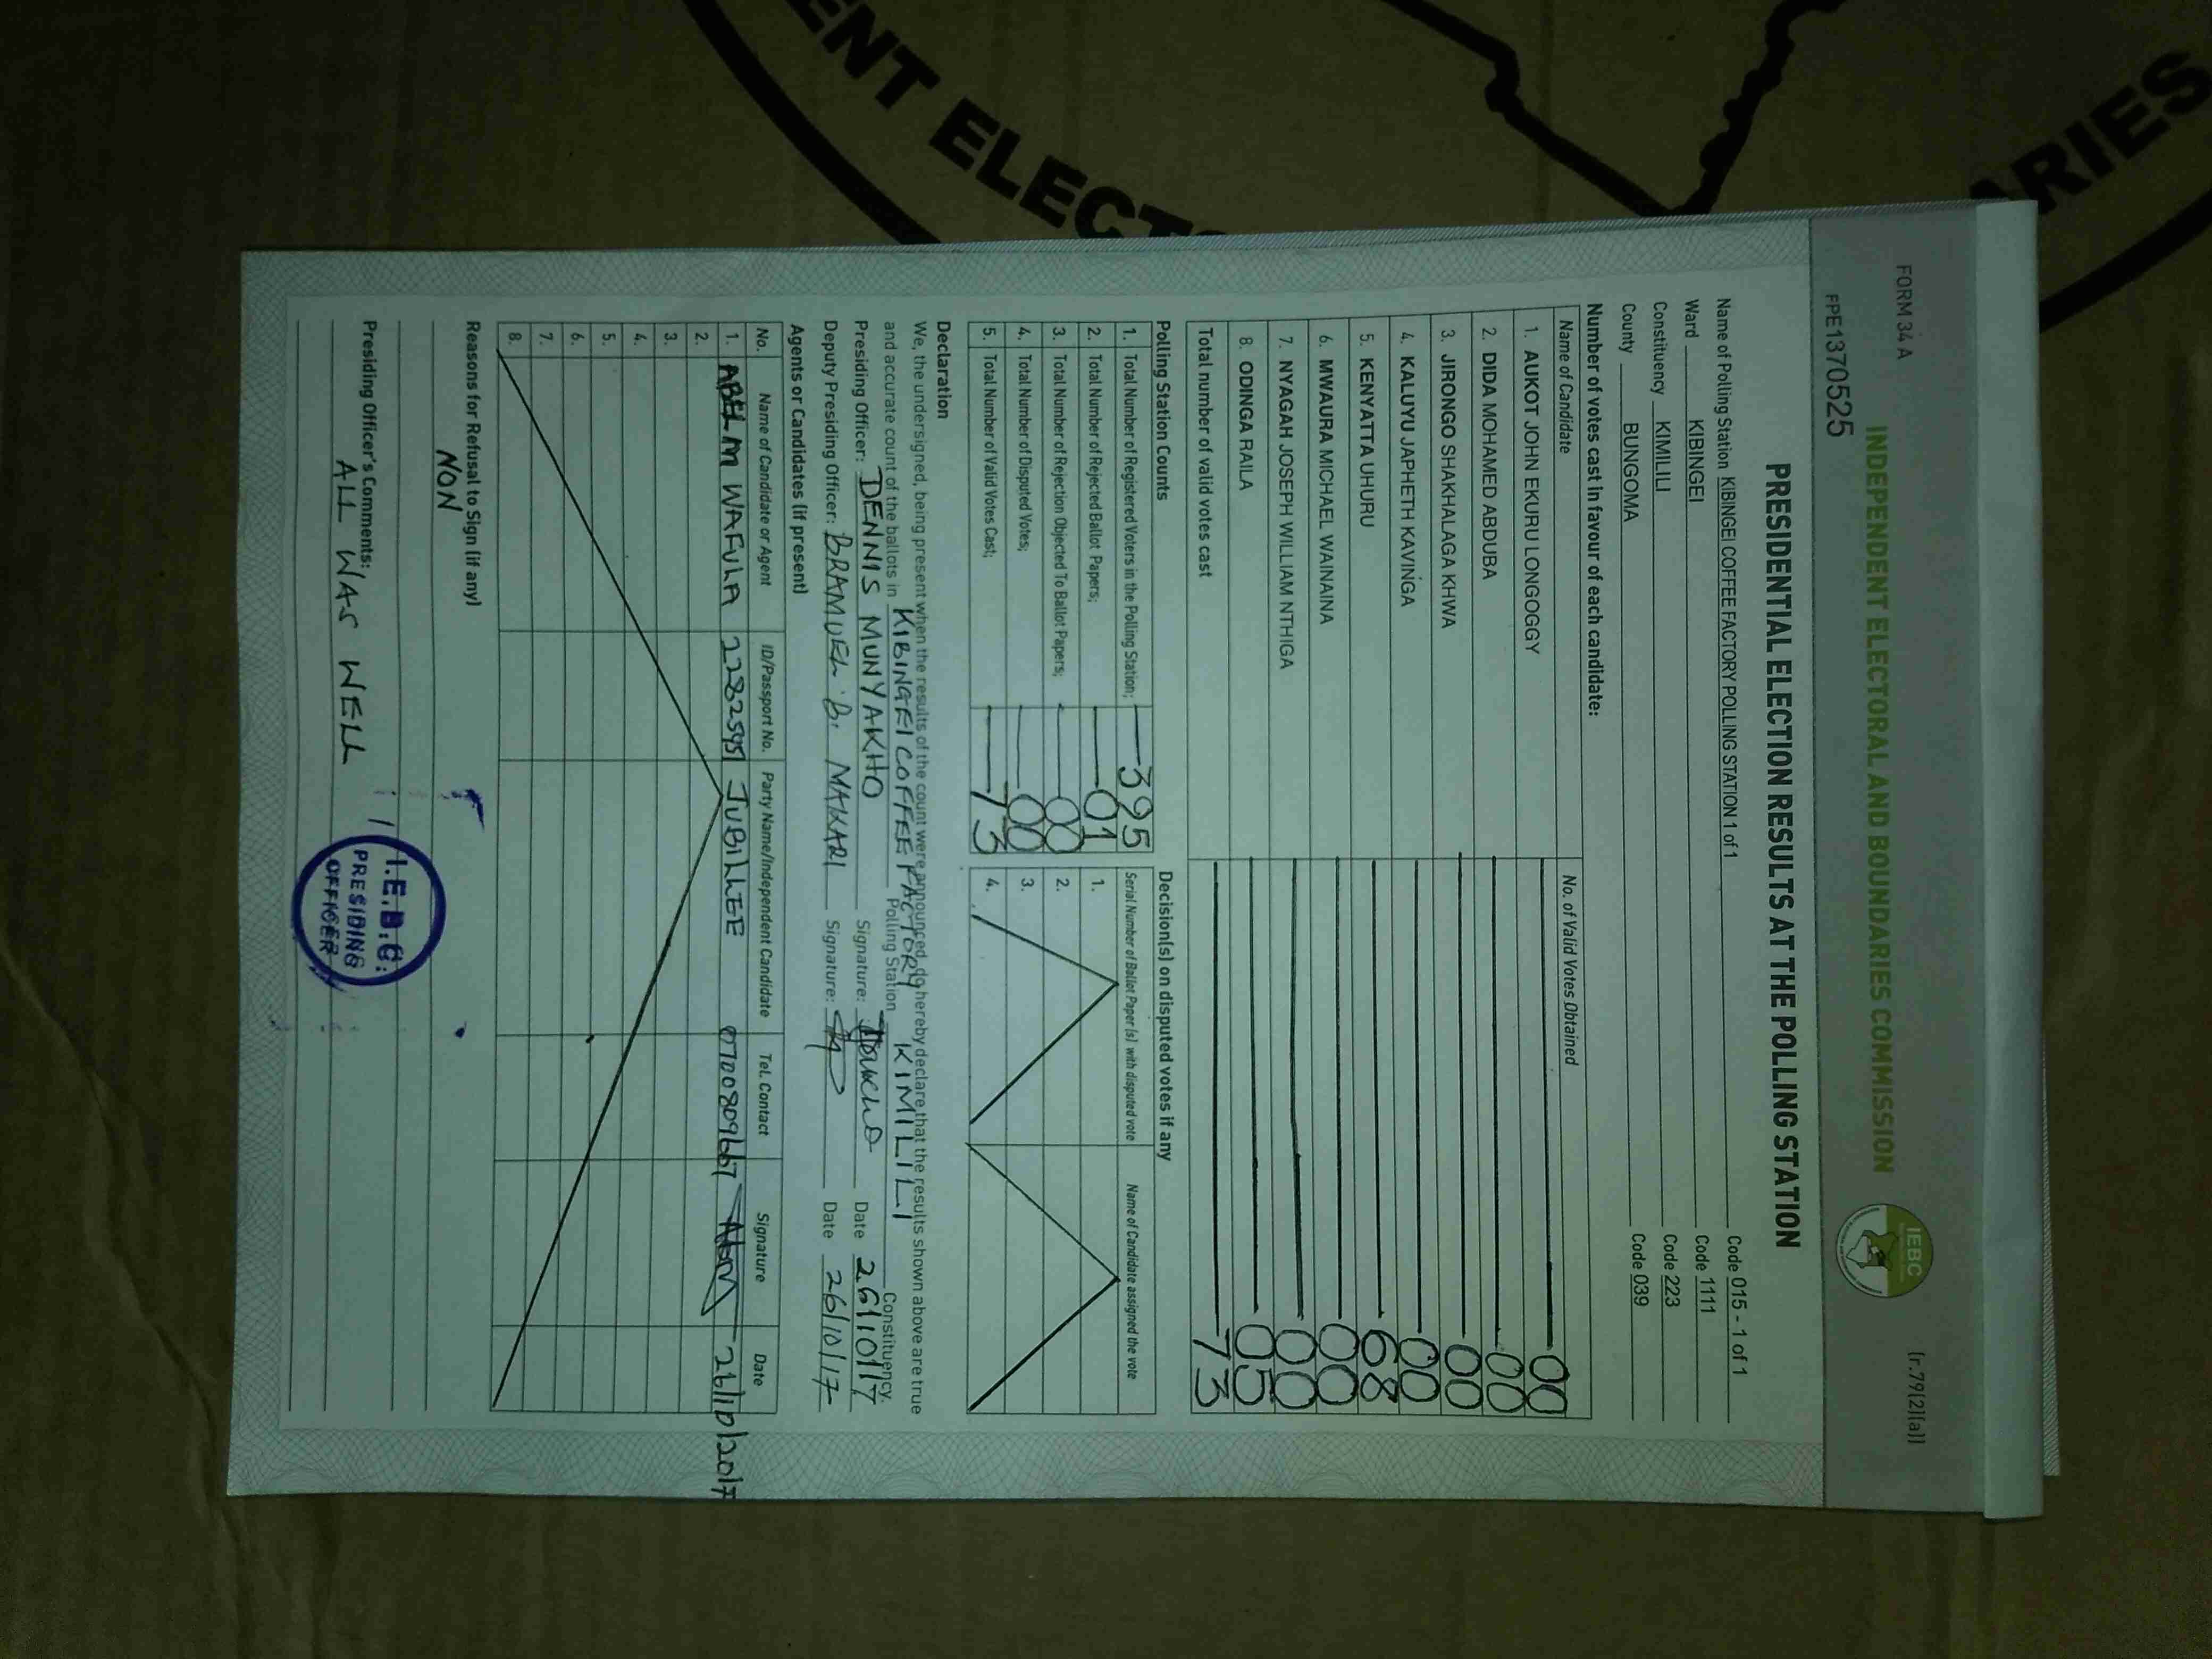 ENT ELECT
ARIES
FORM 34 A
(r.79(2)(a))
INDEPENDENT ELECTORAL AND BOUNDARIES COMMISSION
IEBC
FPE1370525
PRESIDENTIAL ELECTION RESULTS AT THE POLLING STATION
Name of Polling Station KIBINGEI COFFEE FACTORY POLLING STATION 1 of 1 Code 015 - 1 of 1
Ward KIBINGEI Code 1111
Constituency KIMILILI Code 223
County BUNGOMA Code 039
Number of votes cast in favour of each candidate:
Name of Candidate No. of Valid Votes Obtained
1. AUKOT JOHN EKURU LONGOGGY 00
2. DIDA MOHAMED ABDUBA 00
3. JIRONGO SHAKHALAGA KHWA 00
4. KALUYU JAPHETH KAVINGA 00
5. KENYATTA UHURU 68
6. MWAURA MICHAEL WAINAINA 00
7. NYAGAH JOSEPH WILLIAM NTHIGA 00
8. ODINGA RAILA 05
Total number of valid votes cast 73
Polling Station Counts
1. Total Number of Registered Voters in the Polling Station; 395
2. Total Number of Rejected Ballot Papers; 01
3. Total Number of Rejection Objected To Ballot Papers; 00
4. Total Number of Disputed Votes; 00
5. Total Number of Valid Votes Cast; 73
Decision(s) on disputed votes if any
Serial Number of Ballot Paper (s) with disputed vote Name of Candidate assigned the vote
1.
2.
3.
4.
Declaration
We, the undersigned, being present when the results of the count were announced, do hereby declare that the results shown above are true
and accurate count of the ballots in KIBINGEI COFFEE FACTORY Polling Station KIMILILI Constituency.
Presiding Officer: DENNIS MUNYAKHO Signature: Date 26/10/17
Deputy Presiding Officer: BRAMUEL B. MAKARI Signature: Date 26/10/17
Agents or Candidates (if present)
No. Name of Candidate or Agent ID/Passport No. Party Name/Independent Candidate Tel. Contact Signature Date
1. ABEL M WAFULA 22825951 JUBILEE 0700809667 26/10/2017
2.
3.
4.
5.
6.
7.
8.
Reasons for Refusal to Sign (if any)
NON
Presiding Officer's Comments:
ALL WAS WELL
I.E.B.C.
PRESIDING
OFFICER